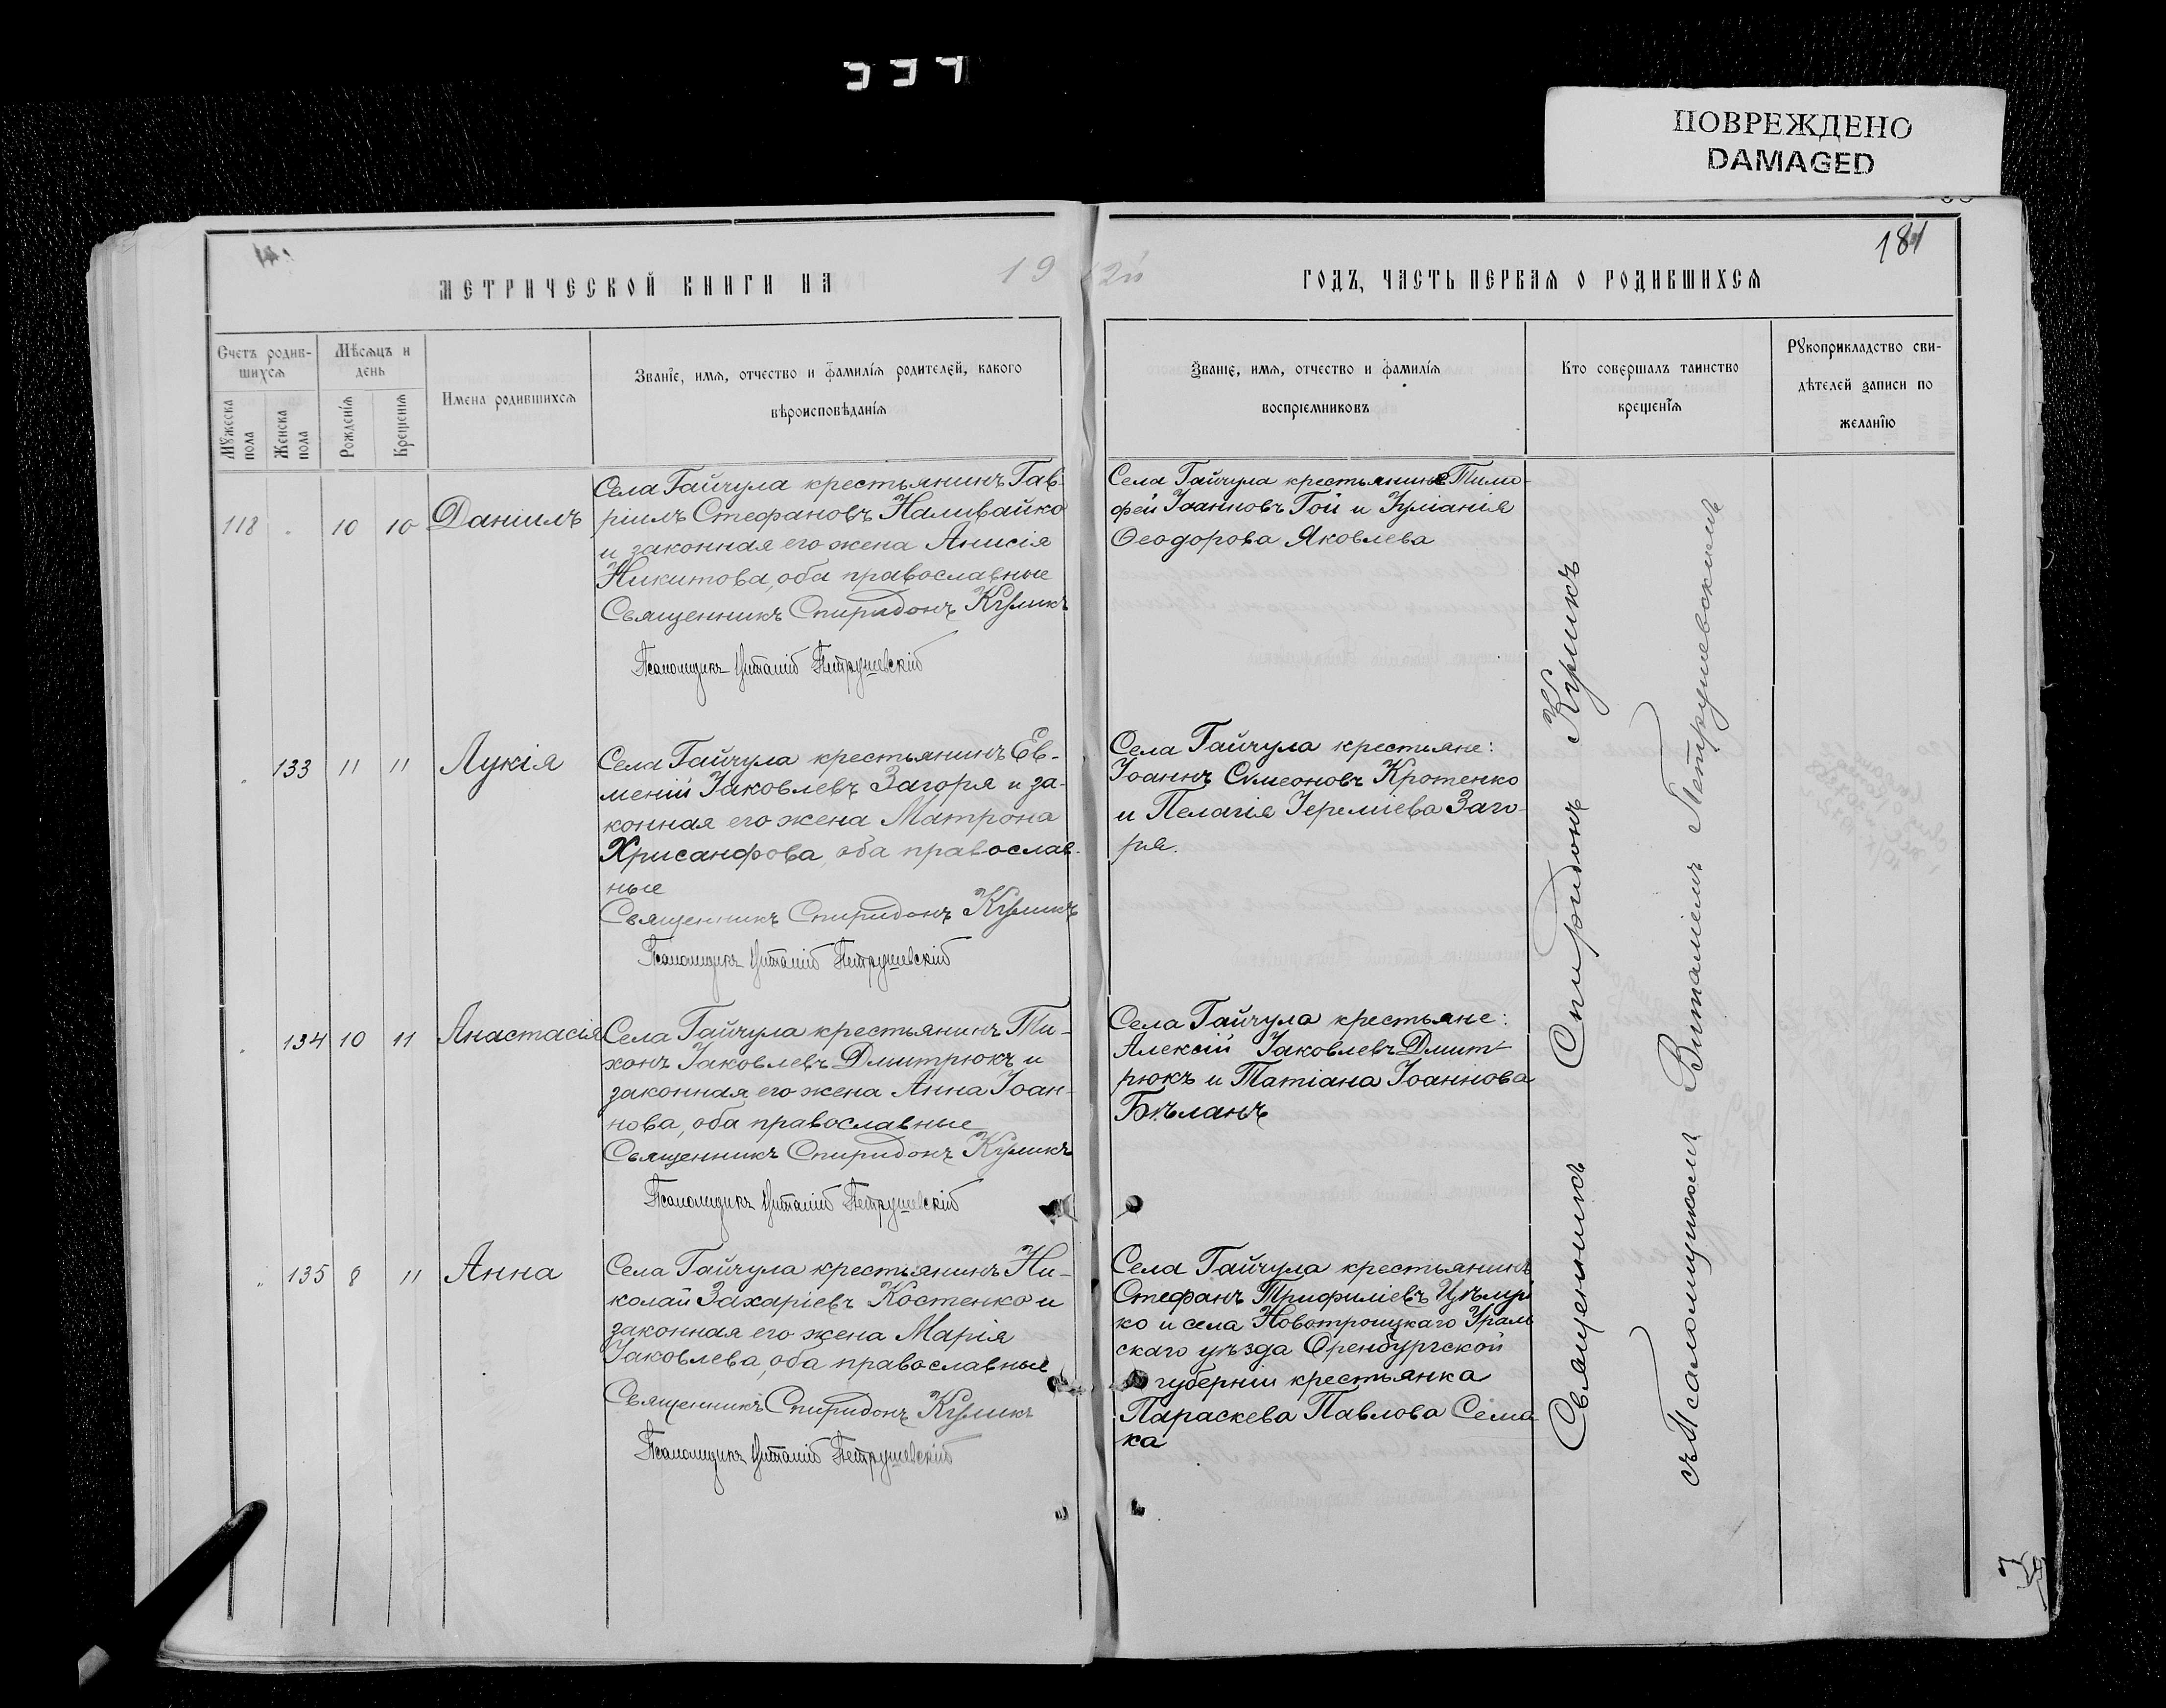 ПОВРЕЖДЕНО
DAMAGED
181
МЕТРИЧЕСКОЙ КНИГИ НА 19
12й ГОДЪ, ЧАСТЬ ПЕРВАЯ О РОДИВШИХСЯ
Счетъ родив-
шихся
Мѣсяцъ и
день
Мужеска
пола
Женска
пола
Рожденїя
Крещенїя
Имена родившихся
Званїе, имя, отчество и фамилїя родителей, какого
вѣроисповѣданїя
Званїе, имя, отчество и фамилїя
воспрїемниковъ
Кто совершалъ таинство
крещенїя
Рукоприкладство сви-
дѣтелей записи по
желанїю
118 10 10 Даніилъ
Села Гайчула крестьянинъ Гав-
ріилъ Стефановъ Наливайко
и законная его жена Анисія
Никитова, оба православные
Священникъ Спиридонъ Куликъ
Псаломщикъ Виталій Петрушевскій
Села Гайчула крестьянинъ Тимо-
фей Іоанновъ Гой и Іуліанія
Ѳеодорова Яковлева
133 11 11 Лукія
Села Гайчула крестьянинъ Ев-
меній Іаковлевъ Загоря и за-
конная его жена Матрона
Хрисанфова, оба православ-
ные
Священникъ Спиридонъ Куликъ
Псаломщикъ Виталій Петрушевскій
Села Гайчула крестьяне:
Іоаннъ Симеоновъ Кротенко
и Пелагія Іереміева Заго-
ря.
134 10 11 Анастасія
Села Гайчула крестьянинъ Ти-
хонъ Іаковлевъ Дмитрюкъ и
законная его жена Анна Іоан-
нова, оба православные
Священникъ Спиридонъ Куликъ
Псаломщикъ Виталій Петрушевскій
Села Гайчула крестьяне:
Алексій Іаковлевъ Дмит-
рюкъ и Татіана Іоаннова
Бѣланъ
135 8 11 Анна
Села Гайчула крестьянинъ Ни-
колай Захаріевъ Костенко и
законная его жена Марія
Іаковлева, оба православные
Священникъ Спиридонъ Куликъ
Псаломщикъ Виталій Петрушевскій
Села Гайчула крестьянинъ
Стефанъ Трифиліевъ
ко и села Новотроицкаго Ураль
скаго уѣзда Оренбургской
губерніи крестьянка
Параскева Павлова Сема-
ка
Священникъ Спиридонъ Куликъ
съ Псаломщикомъ Виталіемъ Петрушевскимъ